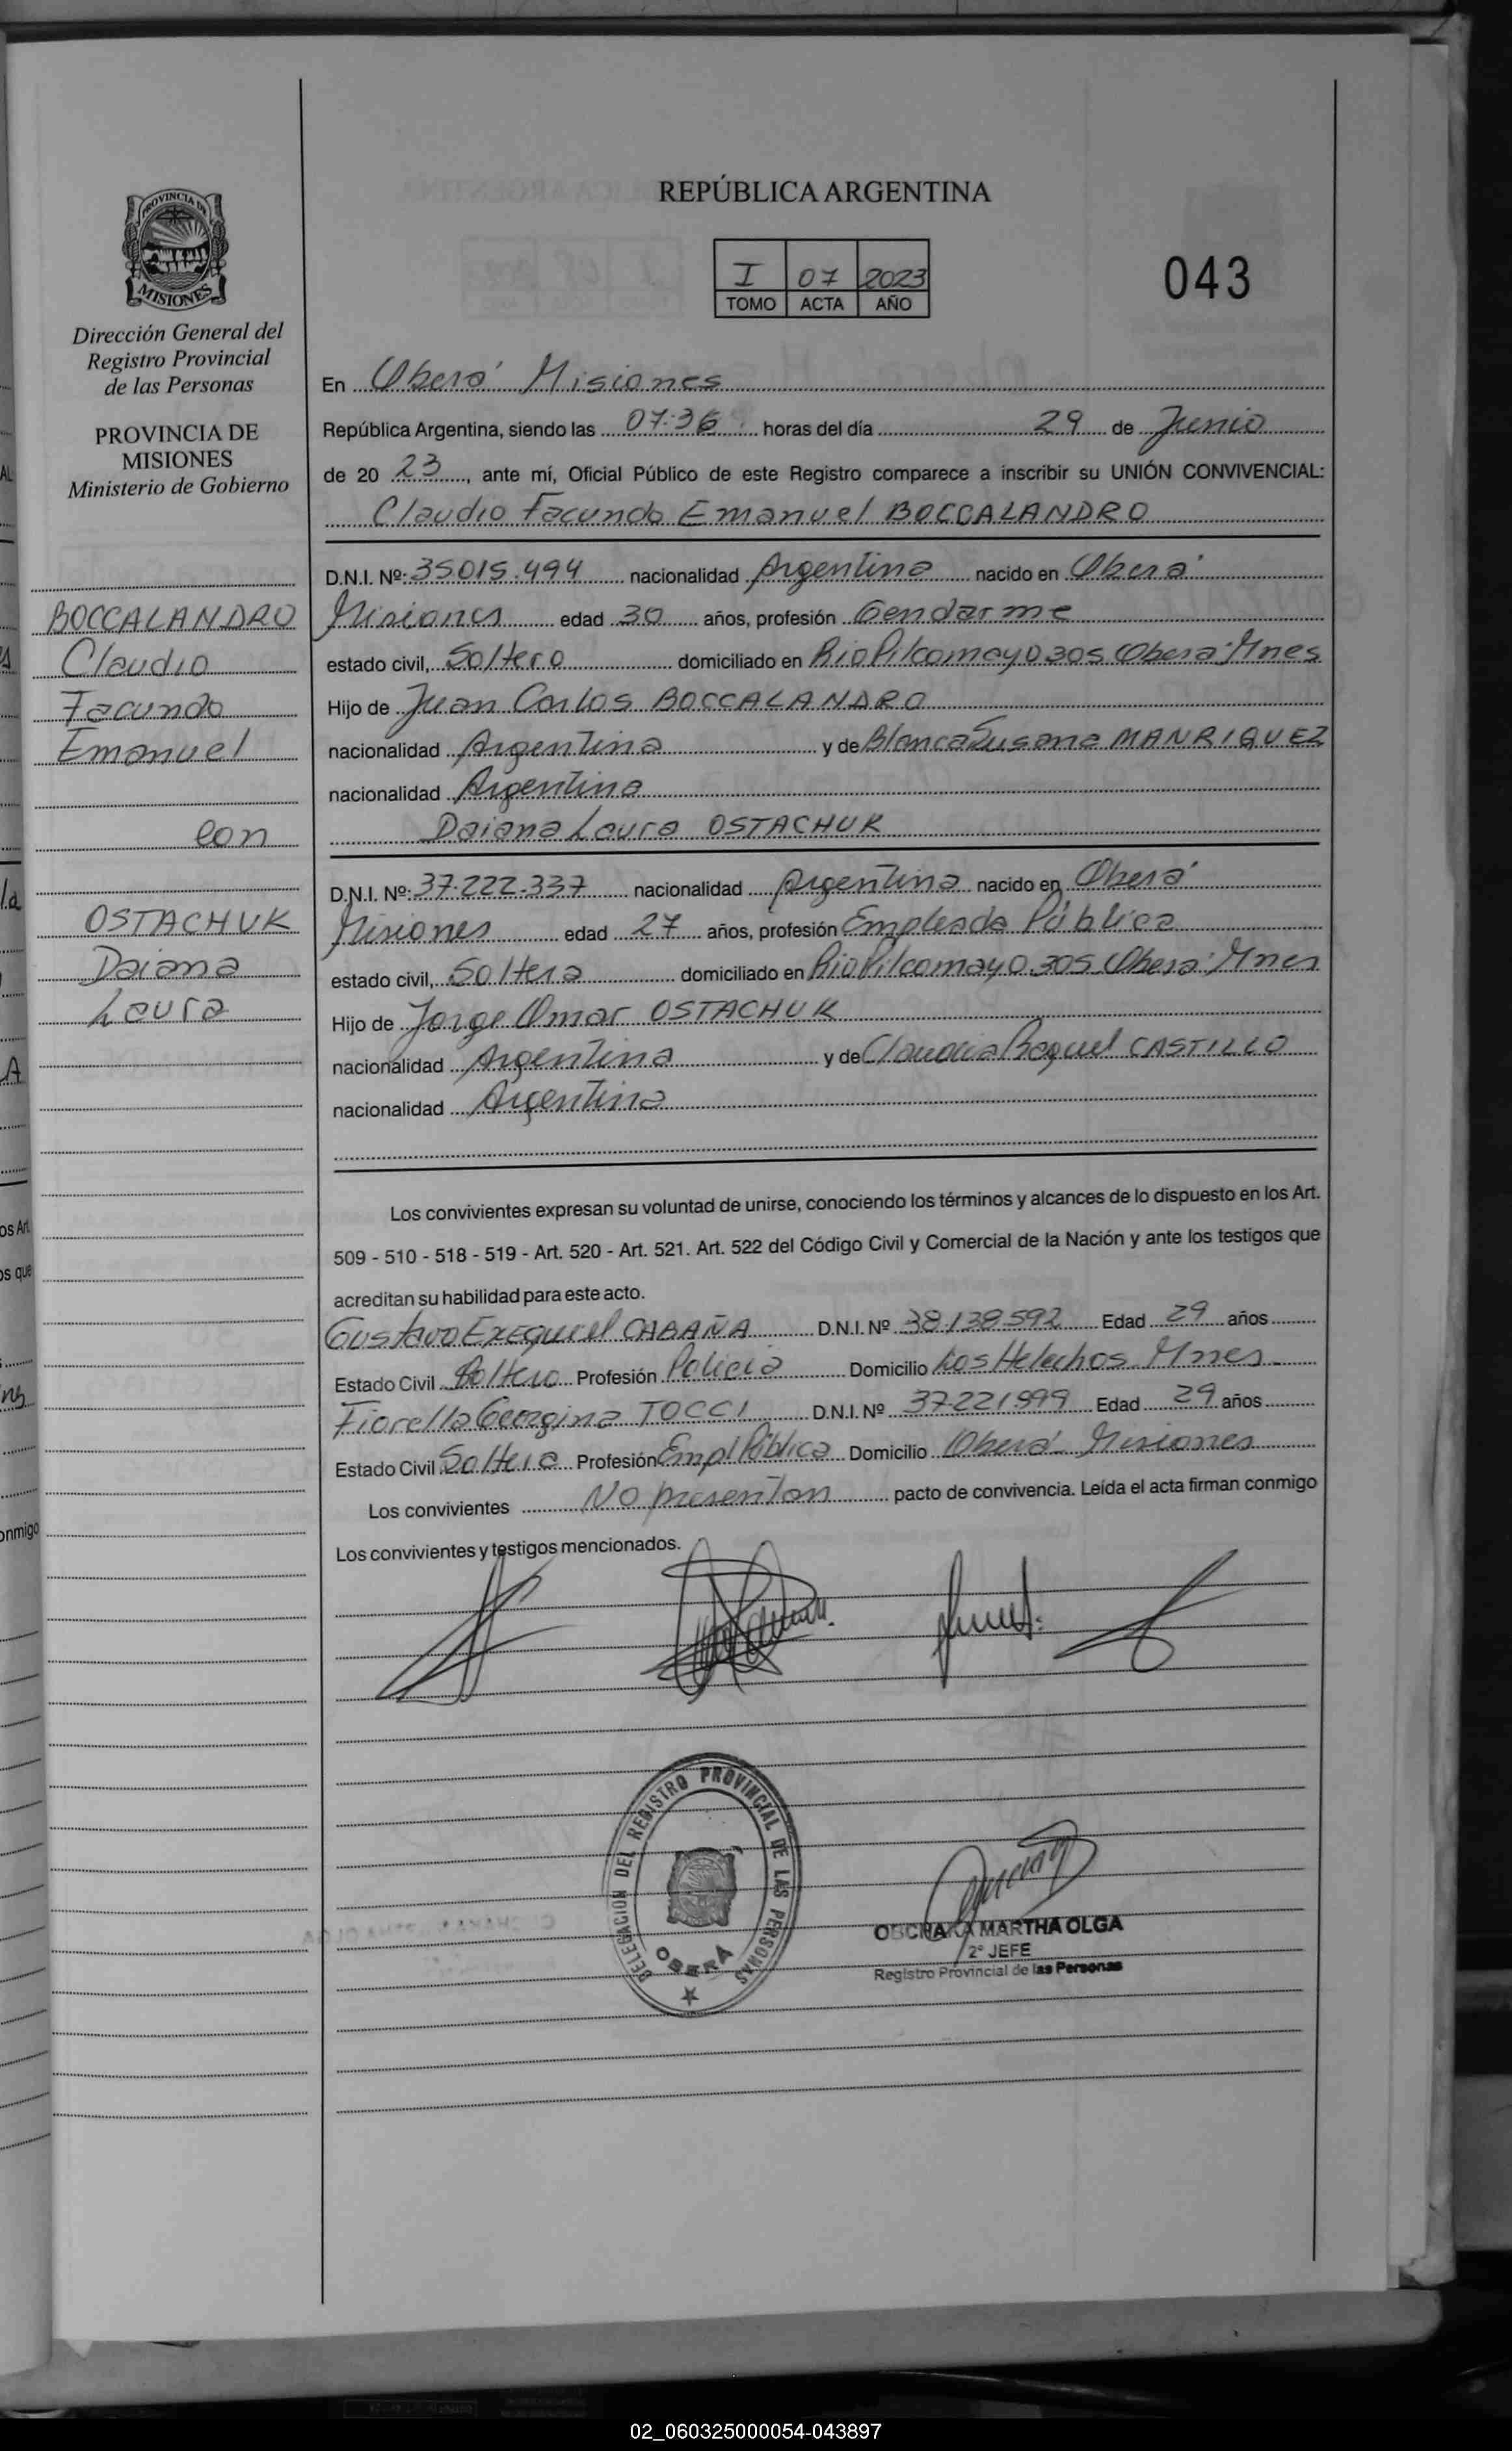 PROVINCIA DE
MISIONES
Dirección General del
Registro Provincial
de las Personas
PROVINCIA DE
MISIONES
Ministerio de Gobierno
BOCCALANDRO
Claudio
Facundo
Emanuel
con
OSTACHUK
Daiana
Laura
REPÚBLICA ARGENTINA
I 07 2023
TOMO ACTA AÑO
043
En Oberá Misiones
República Argentina, siendo las 07:36 horas del día 29 de Junio
de 20 23, ante mí, Oficial Público de este Registro comparece a inscribir su UNIÓN CONVIVENCIAL:
Claudio Facundo Emanuel BOCCALANDRO
D.N.I. Nº: 35015.494 nacionalidad Argentina nacido en Oberá
Misiones edad 30 años, profesión Gendarme
estado civil, Soltero domiciliado en Rio Pilcomayo 305 Oberá Mnes
Hijo de Juan Carlos BOCCALANDRO
nacionalidad Argentina y de Blanca Susana MANRIQUEZ
nacionalidad Argentina
Daiana Laura OSTACHUK
D.N.I. Nº: 37.222.337 nacionalidad Argentina nacido en Oberá
Misiones edad 27 años, profesión Empleada Pública
estado civil, Soltera domiciliado en Rio Pilcomayo 305 Oberá Mnes
Hijo de Jorge Omar OSTACHUK
nacionalidad Argentina y de Claudia Raquel CASTILLO
nacionalidad Argentina
Los convivientes expresan su voluntad de unirse, conociendo los términos y alcances de lo dispuesto en los Art.
509 - 510 - 518 - 519 - Art. 520 - Art. 521. Art. 522 del Código Civil y Comercial de la Nación y ante los testigos que
acreditan su habilidad para este acto.
Gustavo Exequiel CABAÑA D.N.I. Nº 38.138.592 Edad 29 años
Estado Civil Soltero Profesión Policia Domicilio Los Helechos Mnes
Fiorella Georgina TOCCI D.N.I. Nº 37.221.999 Edad 29 años
Estado Civil Soltera Profesión Empl Pública Domicilio Oberá Misiones
Los convivientes No presentan pacto de convivencia. Leída el acta firman conmigo
Los convivientes y testigos mencionados.
DELEGACION DEL REGISTRO PROVINCIAL DE LAS PERSONAS
OBERÁ
OBCHAKA MARTHA OLGA
2º JEFE
Registro Provincial de las Personas
02_060325000054-043897